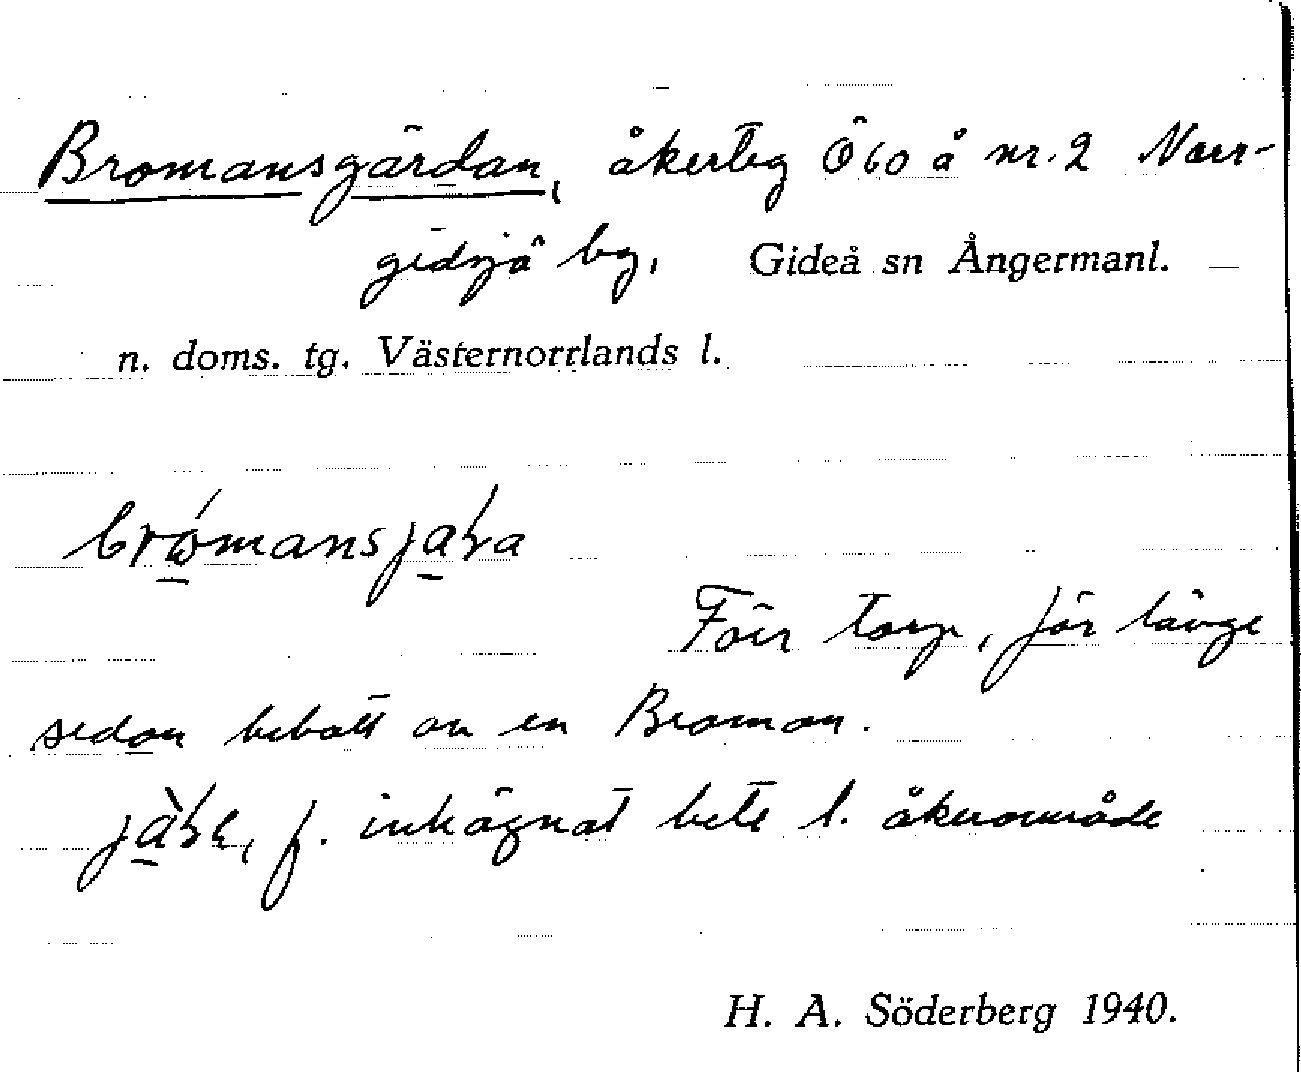 Bromansgärdan, åkerteg Ö 60 å nr. 2 Norr-
gidsjö by, Gideå sn Ångermanl.
n. doms. tg. Västernorrlands l.
Förr torp, för länge
sedan bebott av en Broman.
f. inhägnat bete l. åkerområde
H. A. Söderberg 1940.